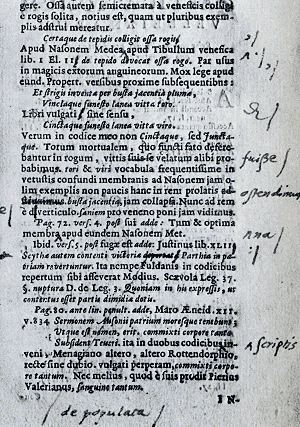 gere. Ossa autem semicremata à veneficis collig
è rogis solita, notius est, quam ut pluribus exem-
plis adstrui mereatur.
Certaque de tepidis colligit ossa rogis
Apud Nasonem Medea, apud Tibullum venefica
lib. 1 El. 11 de tepido devocat ossa rogo. Par usus
in magicis extorum anguineorum. Mox lege apud
eund. Propert. versibus proxime subsequentibus
Et strigis inventa per busta jacentia pluma,
Vinctaque funesto lanea vitta toro.
Libri vulgati sine sensu,
Cinctaque funesto lanea vitta viro.
Verum in codice meo non Cinctaque, sed Juncta-
que. Torum mortualem, quo functi fato defere-
bantur in rogum, vittis suis velatum alibi pro-
babimus. tori & viri vocabula frequentissime in
vetustis confundi membranis ad Nasonem jam
olim exemplis non paucis hanc in rem prolatis
busta jacentia, jam collapsa. Nunc ad rem
è diverticulo. saniem pro veneno poni jam vidimus.
Pag. 72. vers. 4. post sui adde: Tum & optima
membr. apud eundem Nasonem Met.
Ibid. vers. 5. post fugæ est adde: Justinus lib. XLII
Scythæ autem contenti victoria Parthia in pa-
triam revertuntur. Ita nempe Fuldanis in codicibus
repertum sibi asseverat Modius. Scævola Leg. 37.
§. nuptura D. de Leg. 3. Quoniam in his expressis, ut
contentus esset partia dimidia dotis.
Pag. 80. ante lin. penult. adde, Maro Æneid. XII.
v. 834 Sermonem Ausonii patrium moresque tenebunt
Utque est nomen, erit. commixti corpore tanto
Subsident Teucri. ita in duobus codicibus in-
veni Menagiano altero, altero Rottendorphio,
recte sine dubio. vulgati perperam, commixti corpo-
re tantum. Nec melius, quod è suis prodit Pierius
Valerianus, sanguine tantum.
I N-
fuisse
ostendimus
nna
scriptis
depopulata